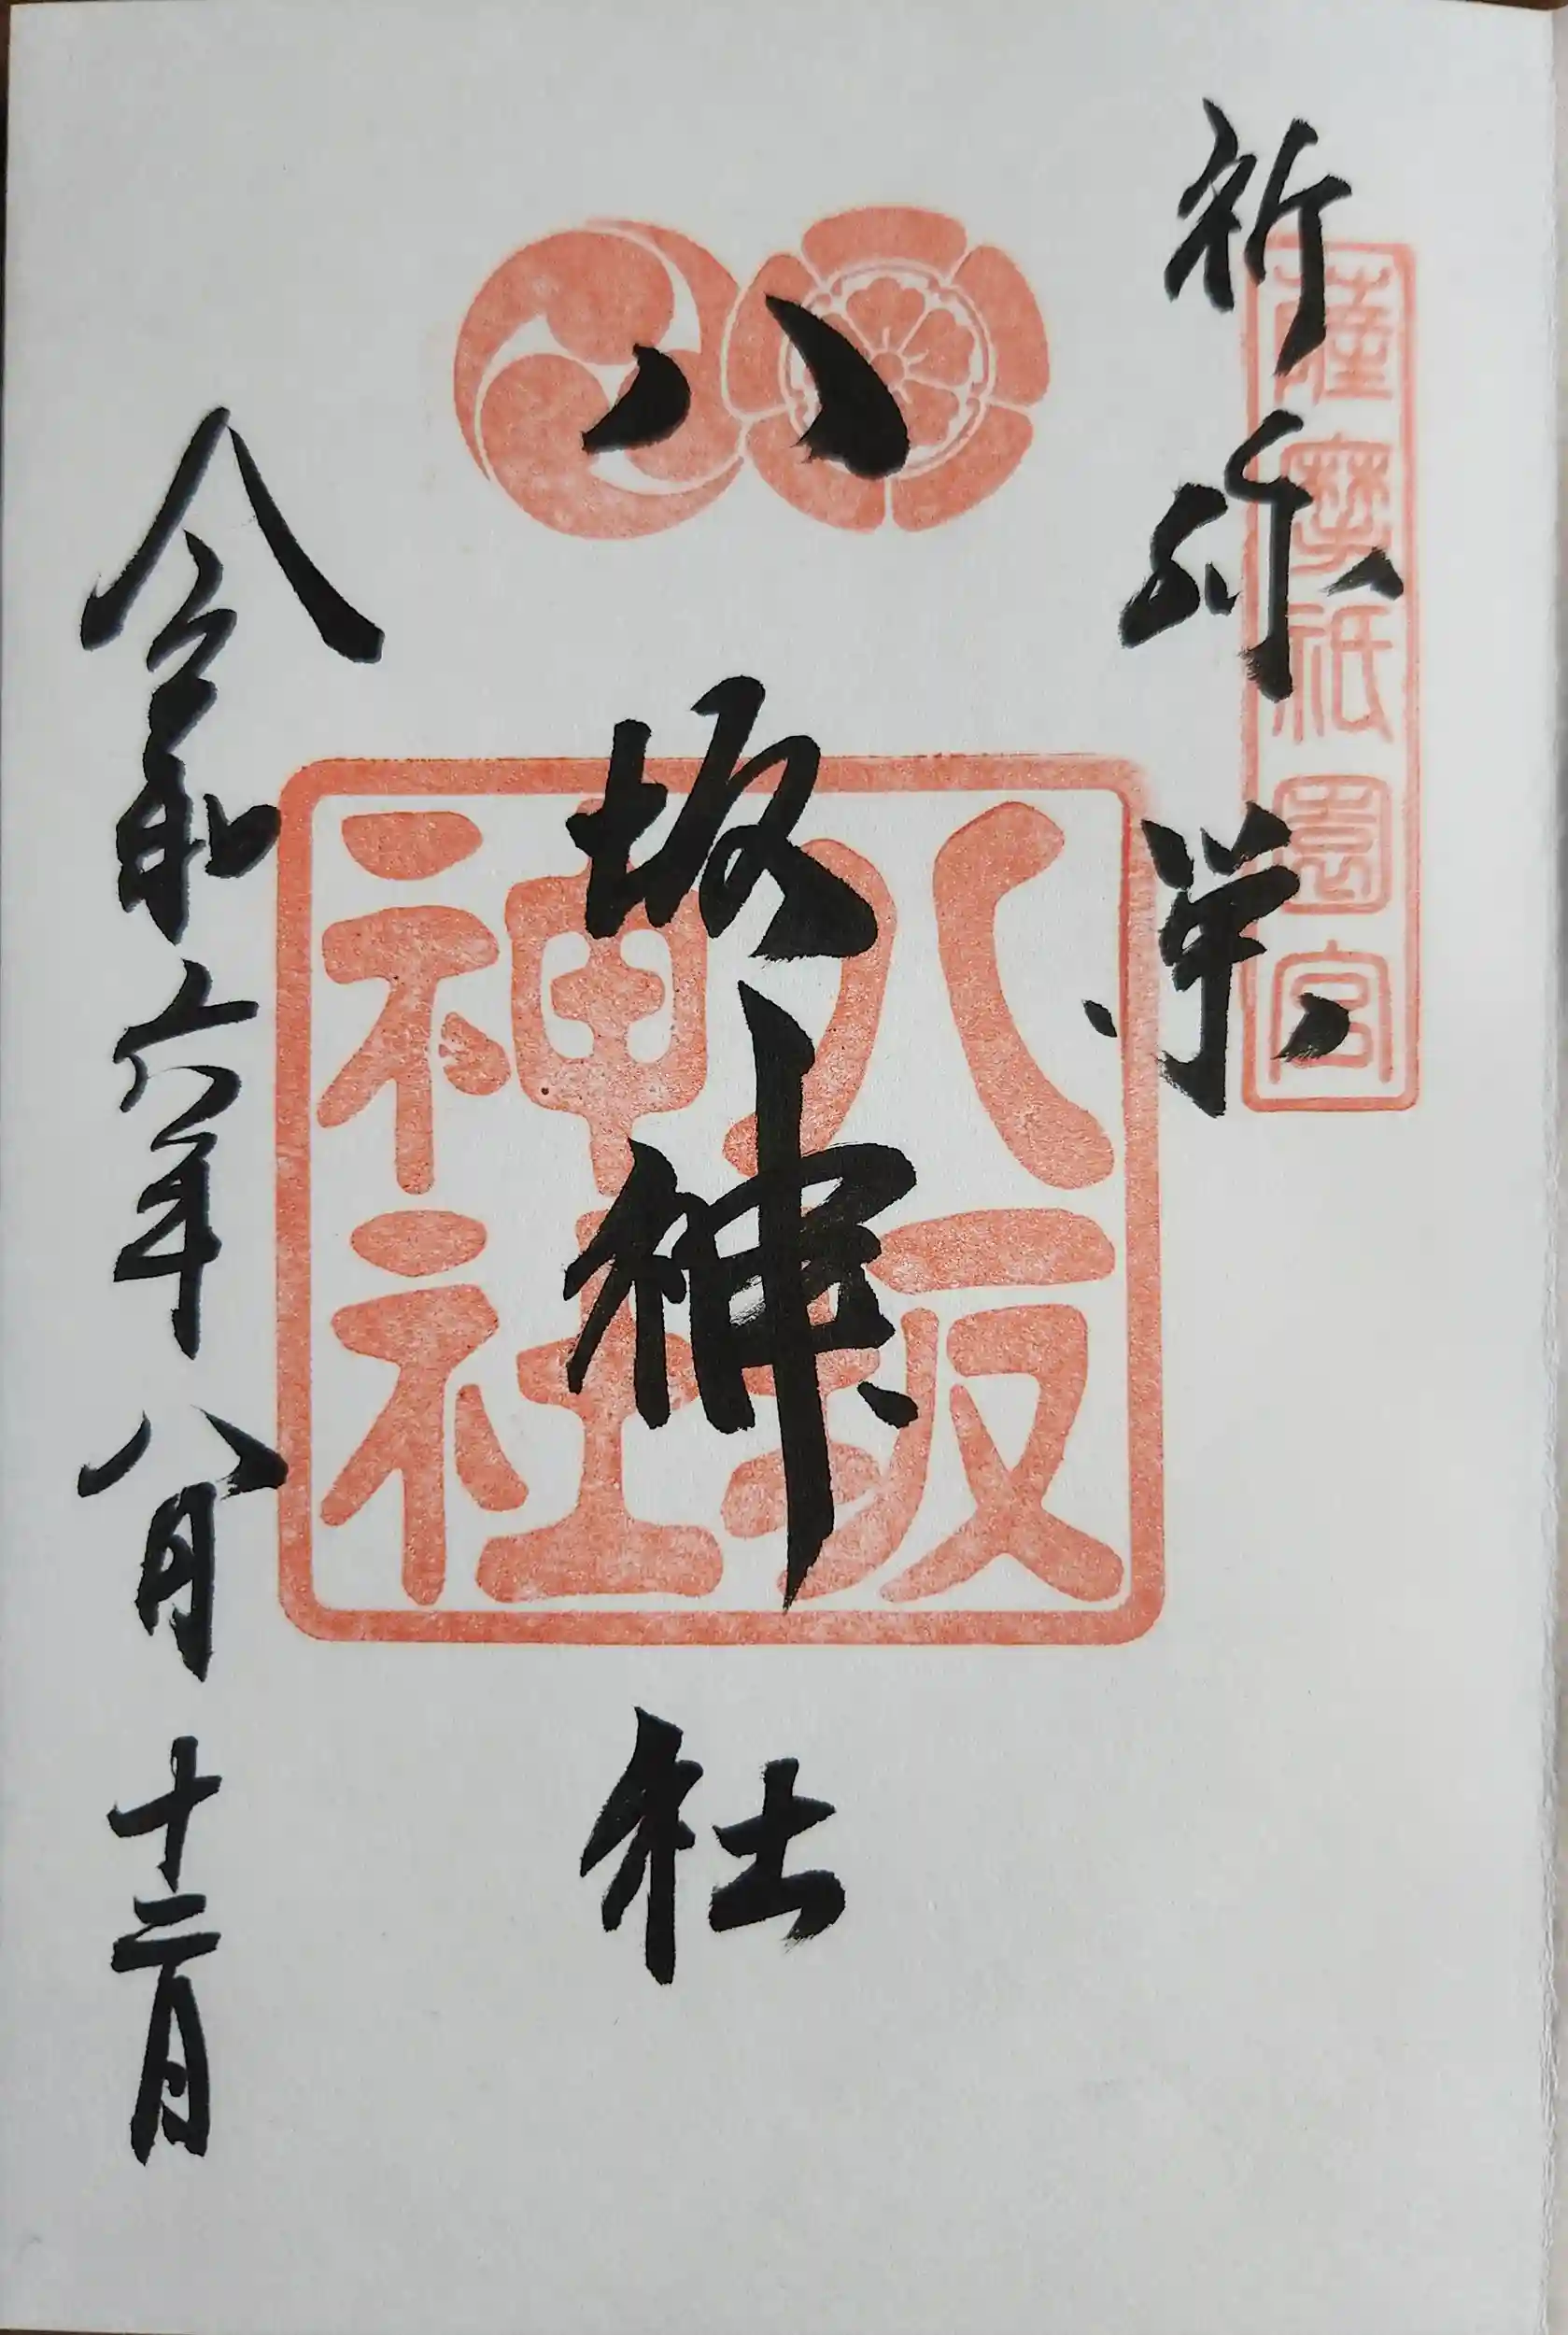 祈弥栄
薩摩祇園宮
八坂神社
八坂
神社
令和六年八月十二日